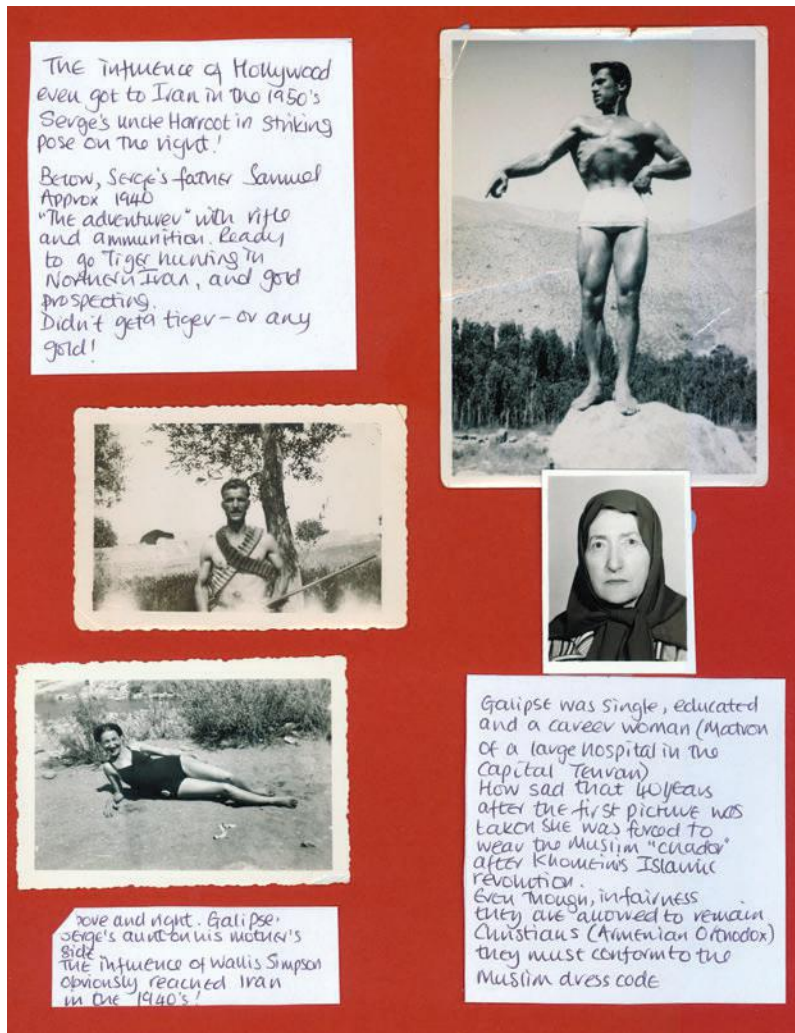 The influence of Hollywood
even got to Iran in the 1950's
Serge's uncle Harroot in striking
pose on the right!
Below, Serge's father Samuel
Approx 1940
"The adventurer" with rifle
and ammunition. Ready
to go Tiger hunting in
Northern Iran, and gold
prospecting.
Didn't get a tiger – or any
gold!
bove and right. Galipse.
Serge's aunt on his mother's
side
The influence of Wallis Simpson
obviously reached Iran
in the 1940's!
Galipse was single, educated
and a career woman (Matron
of a large hospital in the
Capital Tehran)
How sad that 40 years
after the first picture was
taken she was forced to
wear the Muslim "chador"
after Khomeini's Islamic
revolution.
Even though, in fairness
they are allowed to remain
Christians (Armenian Orthodox)
they must conform to the
Muslim dress code